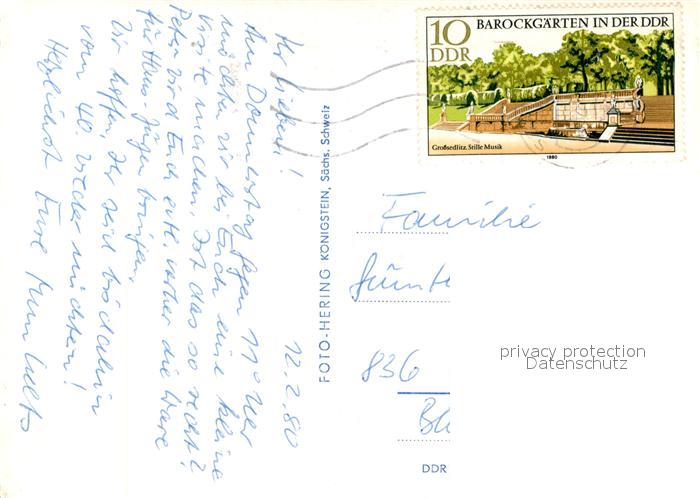 12.2.80
Ihr Lieben!
Am Donnerstag gegen 11°° Uhr
möchten wir bei Euch eine kleine
Visite machen. Ist das so recht?
Peter wird Euch evtl. vorher die Ware
für Hans-Jürgen bringen.
Wir hoffen, Ihr seid
vom 40. wieder nüchtern!
Herzlichst Eure
FOTO-HERING KÖNIGSTEIN, Sächs. Schweiz
10
DDR
BAROCKGÄRTEN IN DER DDR
Großsedlitz. Stille Musik
1980
Familie
Günt
836
Bl
DDR
privacy protection
Datenschutz